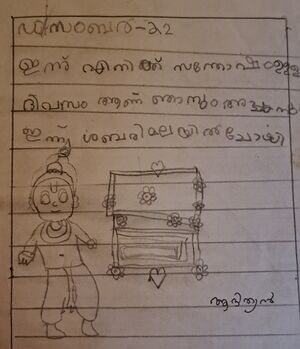 ഡിസംബർ-22
ഇന്ന് എനിക്ക് സന്തോഷംമുള്ള
ദിവസം ആണ് ഞാനും അച്ഛനും
ഇന്ന് ശബരിമലയിൽ പോയി
ആദിത്യൻ